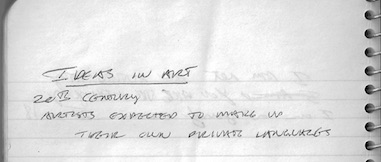 IDEAS IN ART
20TH CENTURY
ARTISTS EXPECTED TO MAKE UP
THEIR OWN PRIVATE LANGUAGES